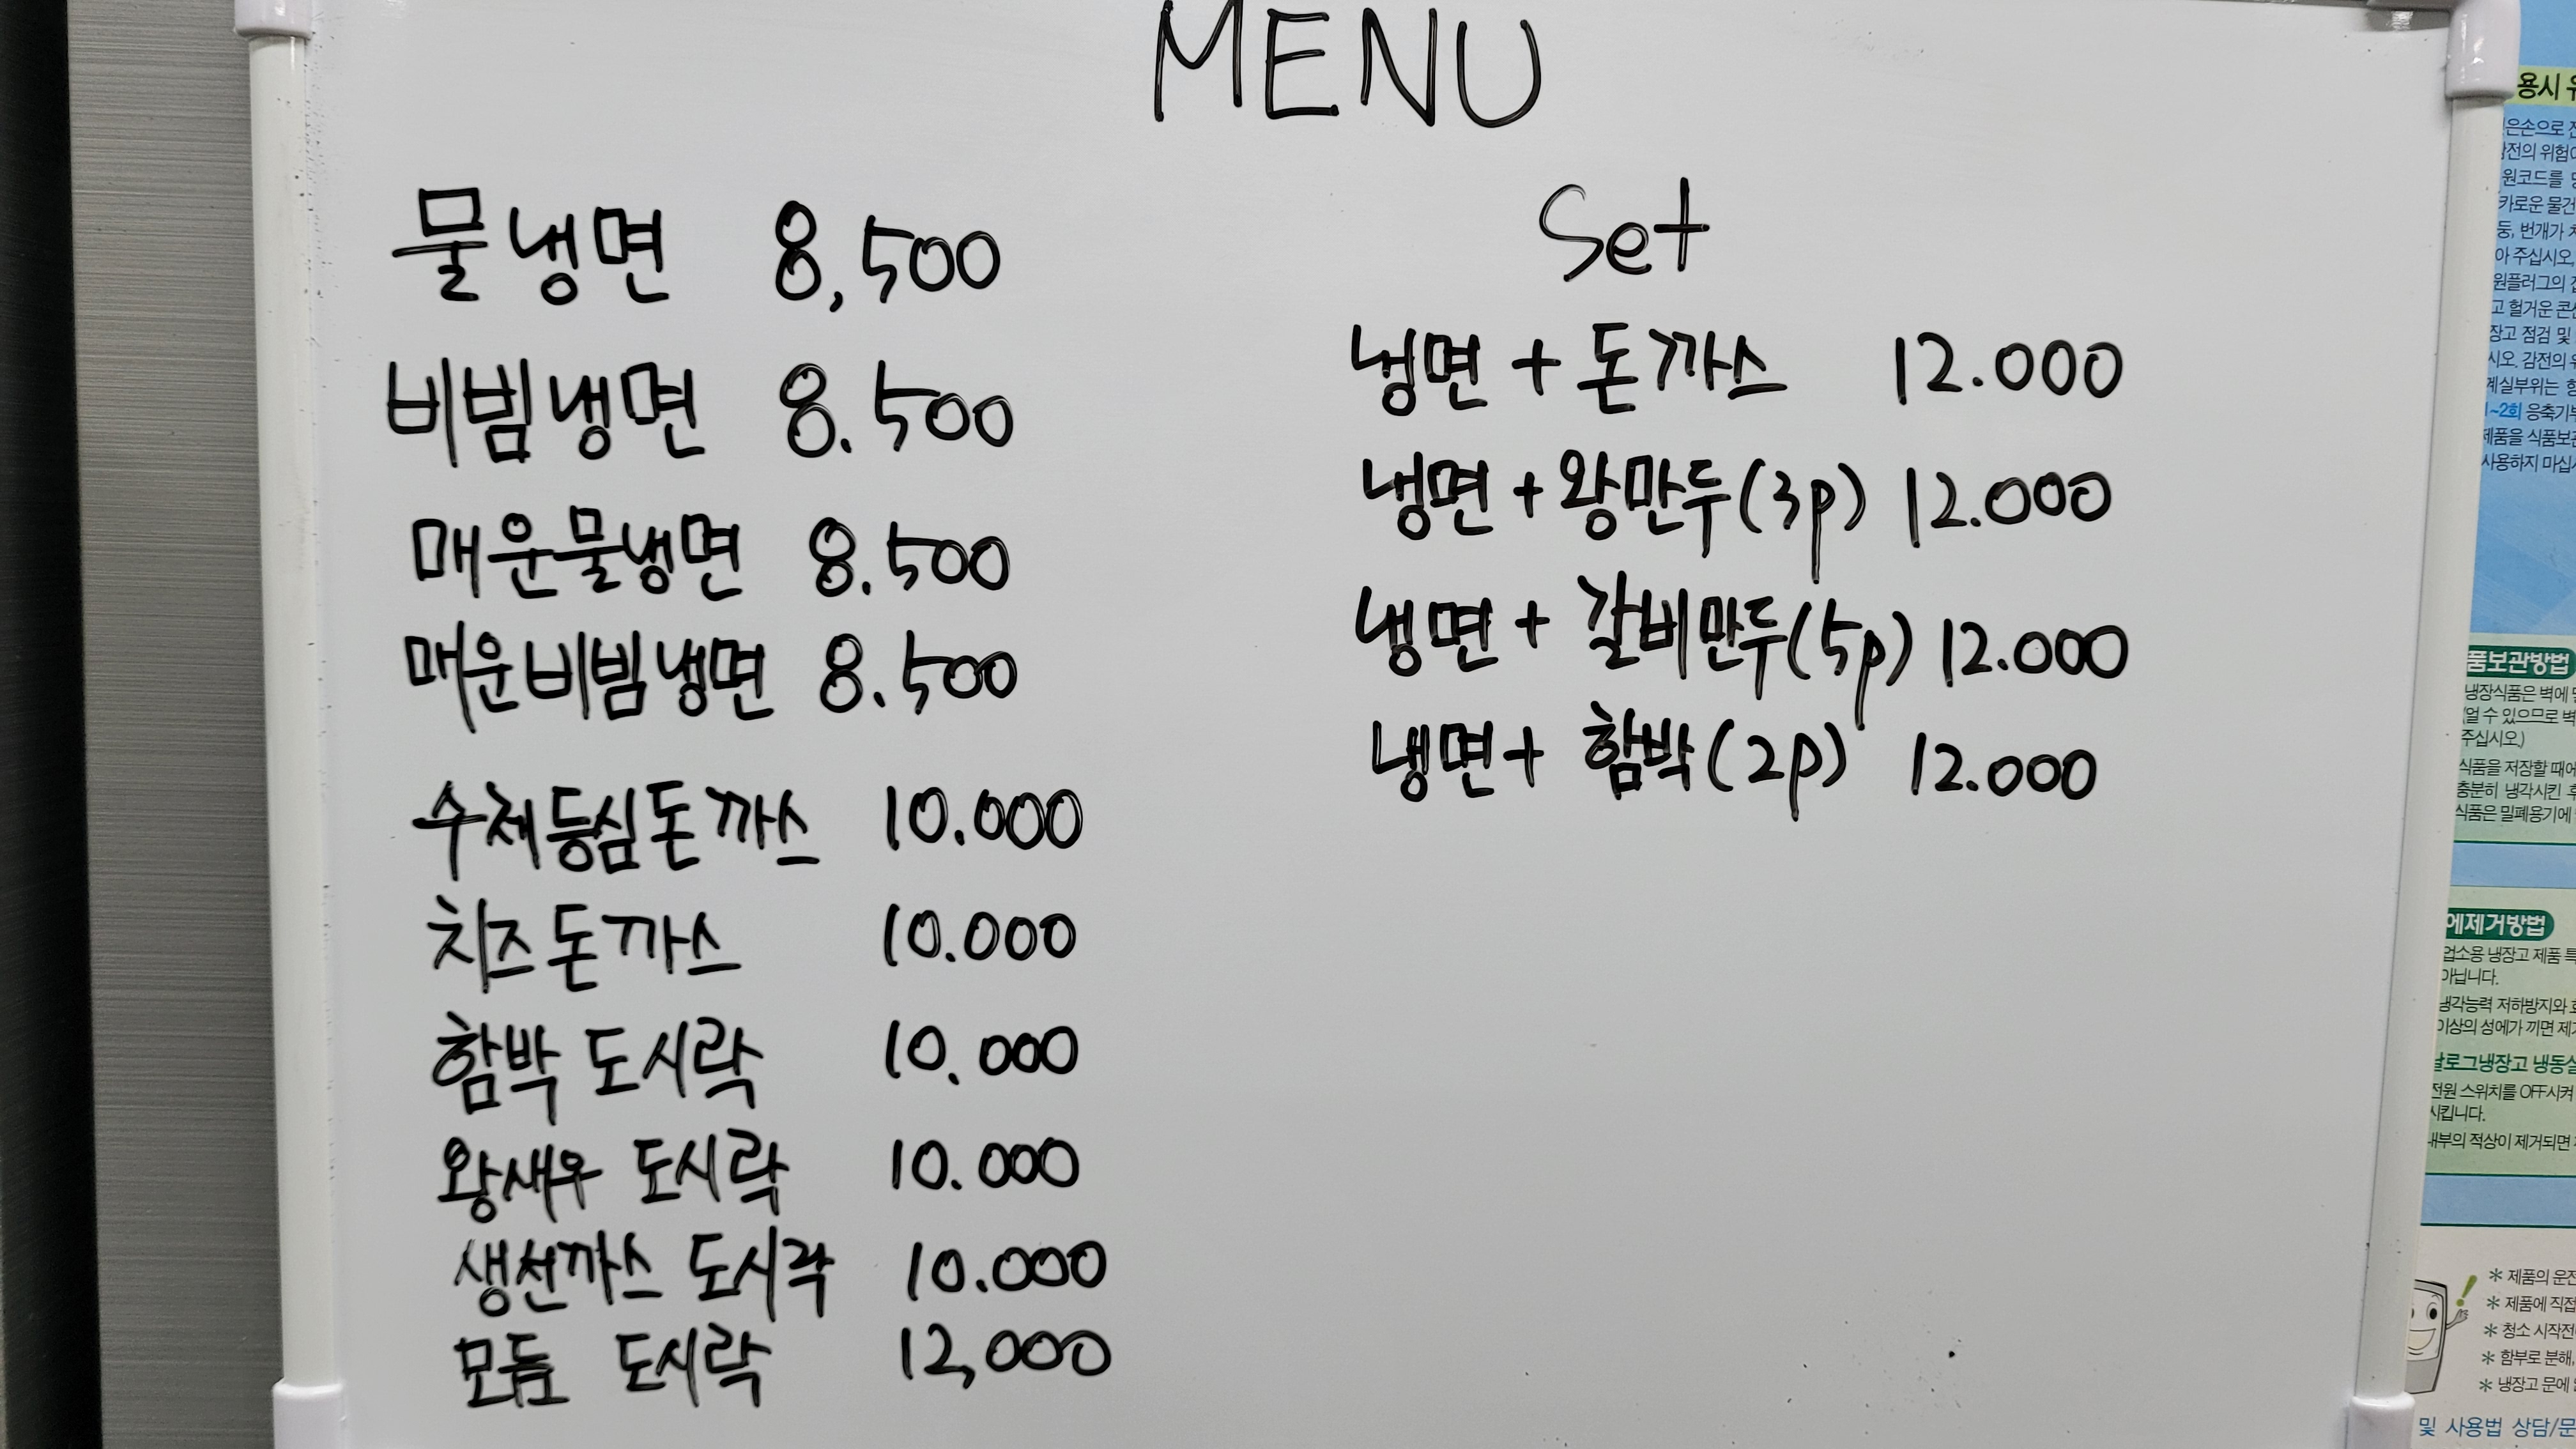 MENU
물냉면 8,500
비빔냉면 8.500
매운물냉면 8.500
매운비빔냉면 8.500
수제등심돈까스 10.000
치즈돈까스 10.000
함박 도시락 10.000
왕새우 도시락 10.000
생선까스 도시락 10.000
모듬 도시락 12,000
Set
냉면 + 돈까스 12.000
냉면 + 왕만두(3p) 12.000
냉면 + 갈비만두(5p) 12.000
냉면 + 함박(2p) 12.000
용시
감전의
원코드를
카로운 물건
둥, 번개가
아 주십시오,
원플러그의
고 헐거운
장고 점검 및
시오. 감전의
1~2회 응축기
제품을
사용하지 마십시
품보관방법
냉장식품은 벽에
얼 수 있으므로 벽
주십시오.)
식품을 저장할 때에
충분히 냉각시킨 후
식품은 밀폐용기에
에제거방법
업소용 냉장고 제품 특
아닙니다.
냉각능력 저하방지와
이상의 성에가 끼면
날로그냉장고 냉동실
전원 스위치를 OFF시켜
시킵니다.
내부의 적상이 제거되면
* 제품의 운전
* 제품에 직접
* 청소 시작전
* 함부로 분해,
* 냉장고 문에
및 사용법 상담/문